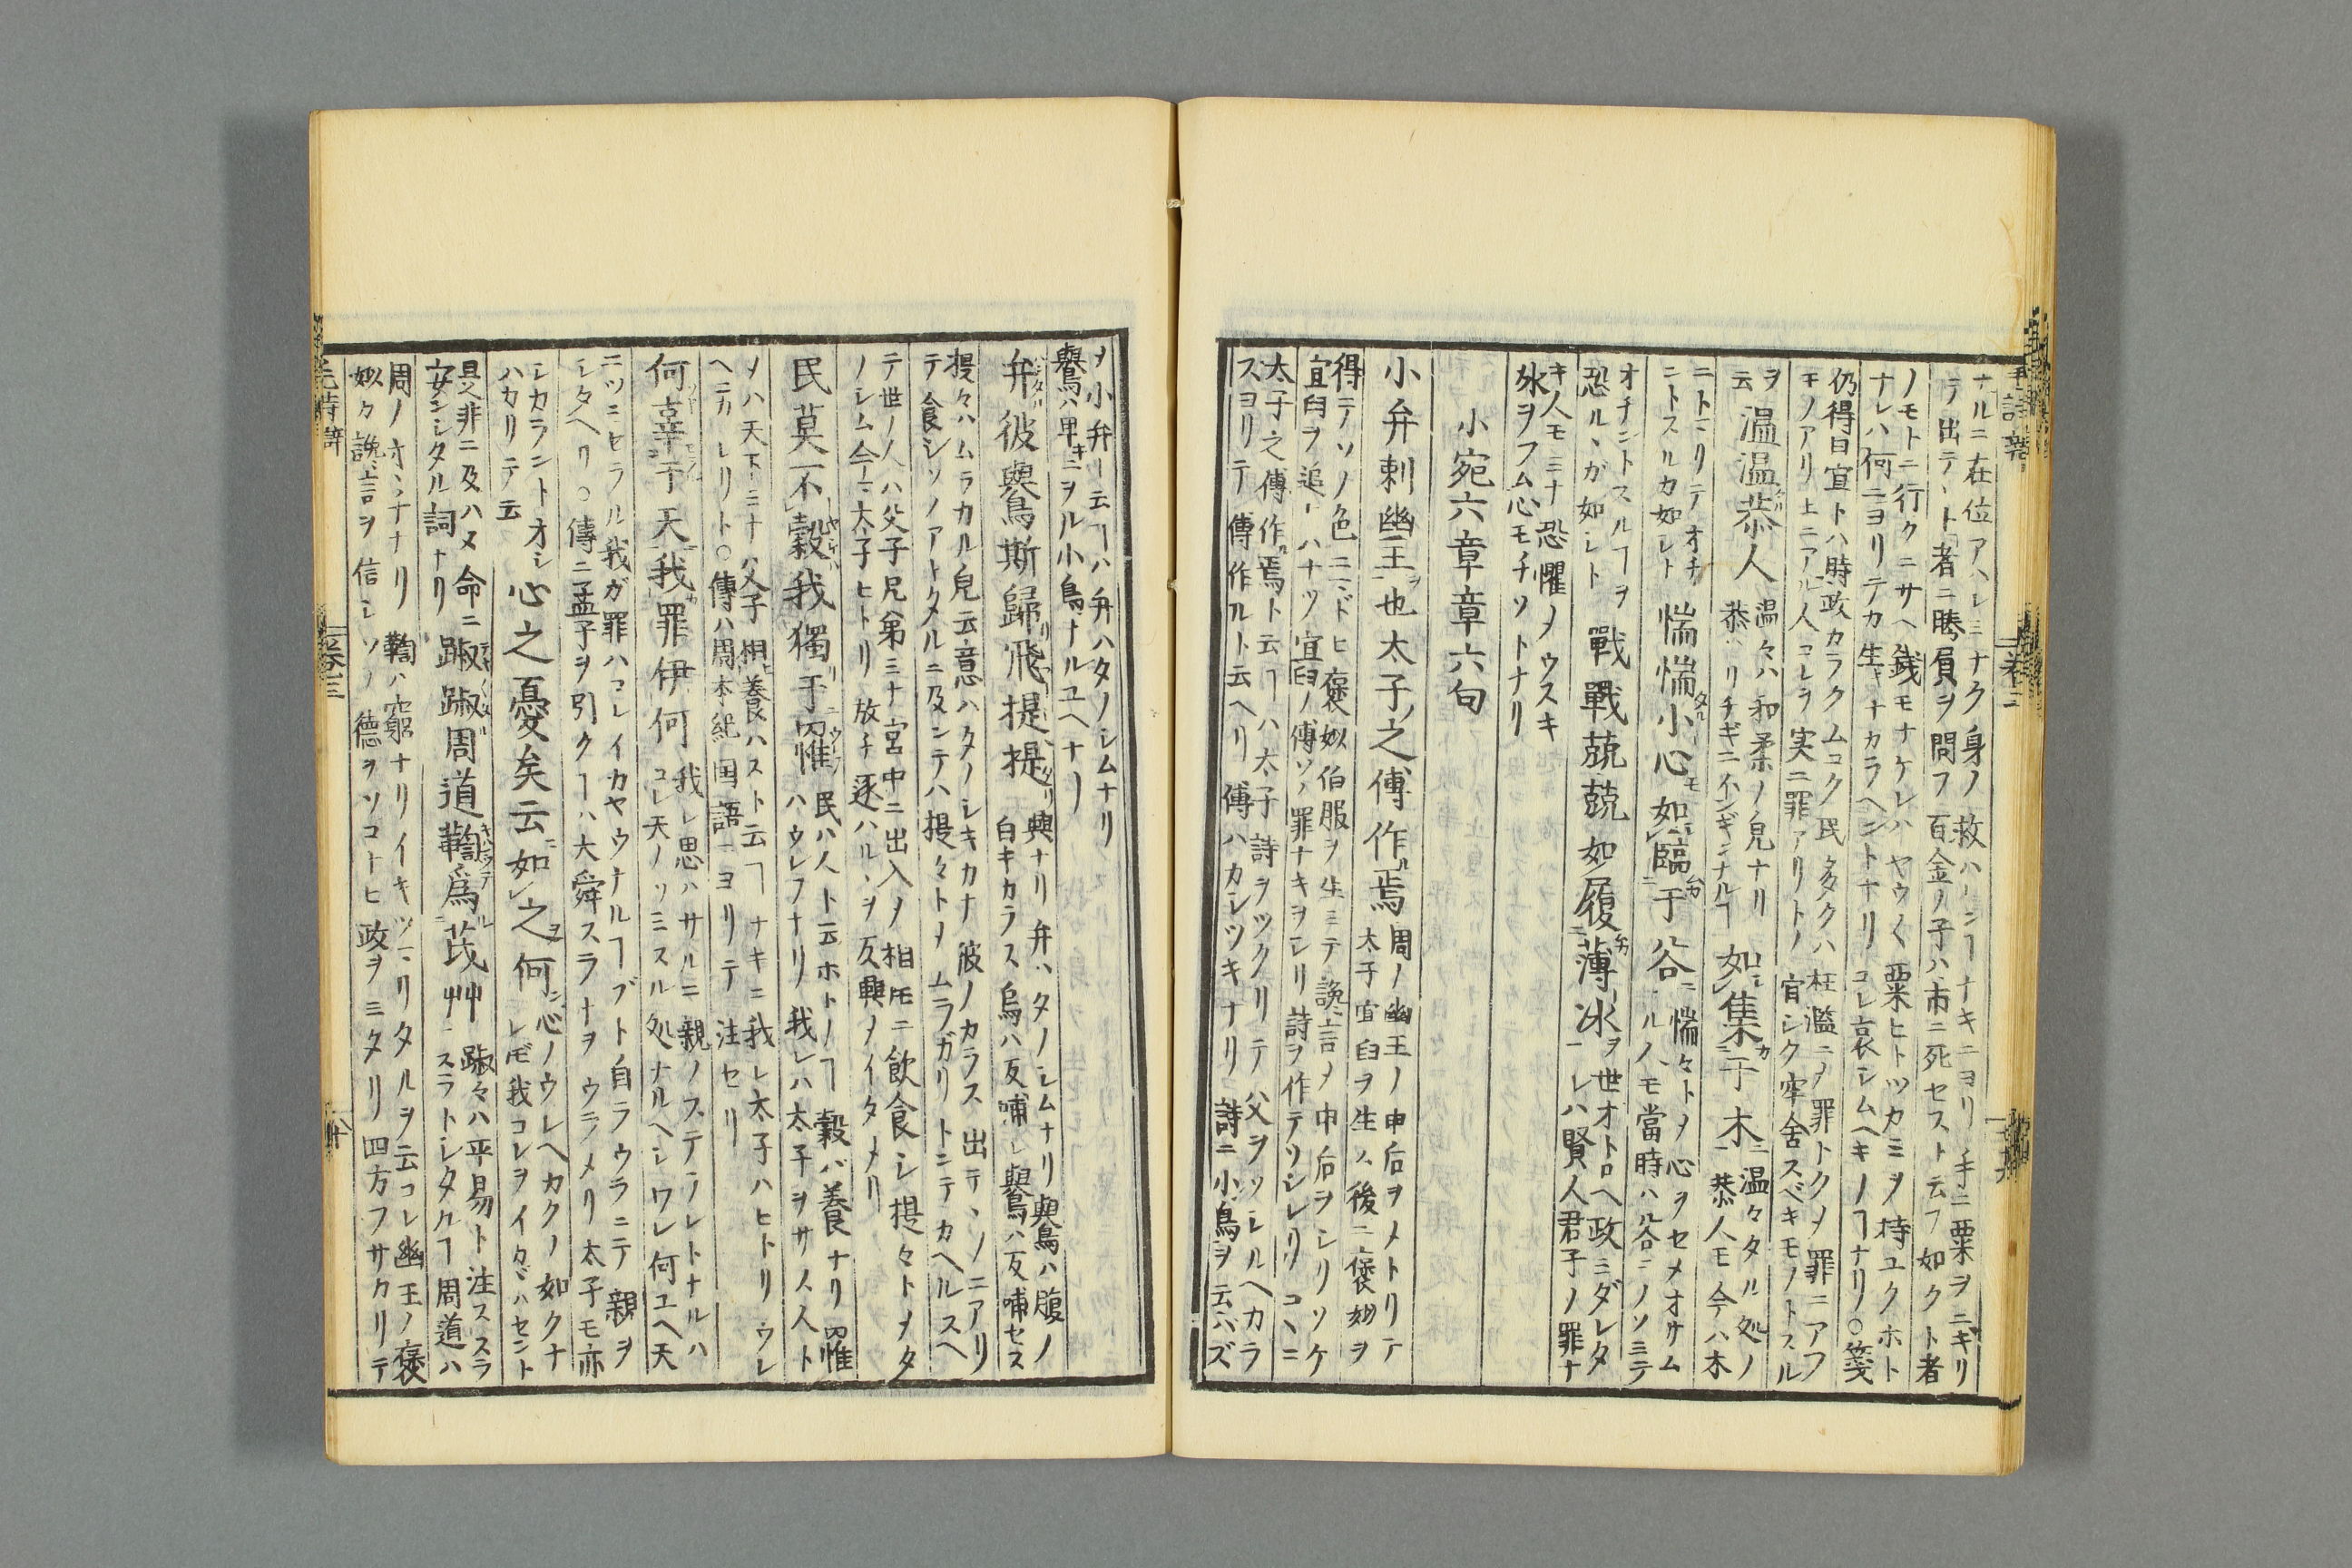 ナルニ在位アハレミナク身ノ救ハンヿナキニヨリ手ニ粟ヲニギリ
テ出テヽト者ニ勝負ヲ問フ百金ノ子ハ市ニ死セスト云フ如クト者
ノモトニ行クニサヘ銭モナケレハヤウ〱粟ヒトツカミヲ持ユクホト
ナレハ何ニヨリテカ生ナカラヘントナリコレ哀シムヘキノヿナリ○箋
仍得曰宜トハ時政カラクムコク民多クハ枉濫ニメ罪トクメ罪ニアフ
モノアリ上ニアル人コレヲ実ニ罪アリトメ宜シク牢舍スベキモノトスル
ヲ
云
温温恭人
温々ハ和柔ノ皃ナリ
恭ハリチギニインギンナルヿ
如集于木
温々タル処ノ
恭人モ今ハ木
ニトマリテオチ
ニトスルカ如レト
惴惴小心如臨于谷
惴々トメ心ヲセメオサム
ルノモ當時ハ谷ニノソミテ
オチントスルヿヲ
恐ルヽガ如レト
戰戰兢兢如履薄冰
世オトロヘ政ミダレタ
レハ賢人君子ノ罪ナ
キ人モミナ恐懼メウスキ
氷ヲフム心モチソトナリ
小宛六章章六句
小弁刺幽王也太子之傅作焉
周ノ幽王ノ申后ヲメトリテ
太子宜臼ヲ生ス後ニ褒姒ヲ
得テソノ色ニマドヒ褒姒伯服ヲ生ミテ讒言メ申后ヲシリソケ
宜臼ヲ追ハナツ宜臼ノ傅ソノ罪ナキヲシリ詩ヲ作テソシレリコヽニ
太子之傅作焉ト云ヿハ太子詩ヲツクリテ父ヲソシルヘカラ
スヨリテ傅作ルト云ヘリ傅ハカシツキナリ詩ニ小鳥ヲ云ハズ
ヲ小弁ト云ヿハ弁ハタノシムナリ
鸒ハ卑キニヲル小鳥ナルユヘナリ
弁彼鸒斯歸飛提提
興ナリ弁ハタノシムナリ鸒ハ腹ノ
白キカラス烏ハ反哺シ鸒ハ反哺セス
提々ハムラカル皃云意ハタノシキカナ彼ノカラス出テヽソニアリ
テ食シソノアトクメルニ及ンテハ提々トメムラガリトンテカヘルスヘ
テ世ノ人ハ父子兄弟ミナ宮中ニ出入メ相トモニ飲食シ提々トメタ
ノシム今マ太子ヒトリ放チ逐ハルヽヲ反興メイタメリ
民莫不穀我獨于罹
民ハ人ト云ホトノヿ穀ハ養ナリ罹
ハウレフナリ我レハ太子ヲサス人ト
メハ天下ミナ父子相養ハスト云ヿナキニ我レ太子ハヒトリウレ
ヘニカヽレリト○傳ハ周本紀国語ニヨリテ注セリ
何辜于天我罪伊何
我レ思ハサルニ親ノステラレトナルハ
コレ天ノツミスル処ナルヘシワレ何ユヘ天
ニツミセラル我ガ罪ハコレイカヤウナルヿブト自ラウラニテ親ヲ
シタヘリ○傳ニ孟子ヲ引クヿハ大舜スラナヲウラメリ太子モ亦
シカラントオシ
ハカリテ云
心之憂矣云如之何
心ノウレヘカクノ如クナ
レㄏ我コレヲイカヾハセント
是非ニ及ハヌ命ニ
安ンシタル詞ナリ
踧踧周道鞫爲茂艸
踧々ハ平易ト注ススラ
スラトシタルヿ周道ハ
周ノオヽチナリ鞫ハ窮ナリイキツマリタルヲ云コレ幽王ノ褒
姒ク讒言ヲ信シソノ徳ヲソコナヒ政ヲミタリ四方フサカリテ
毛詩辨
卷三